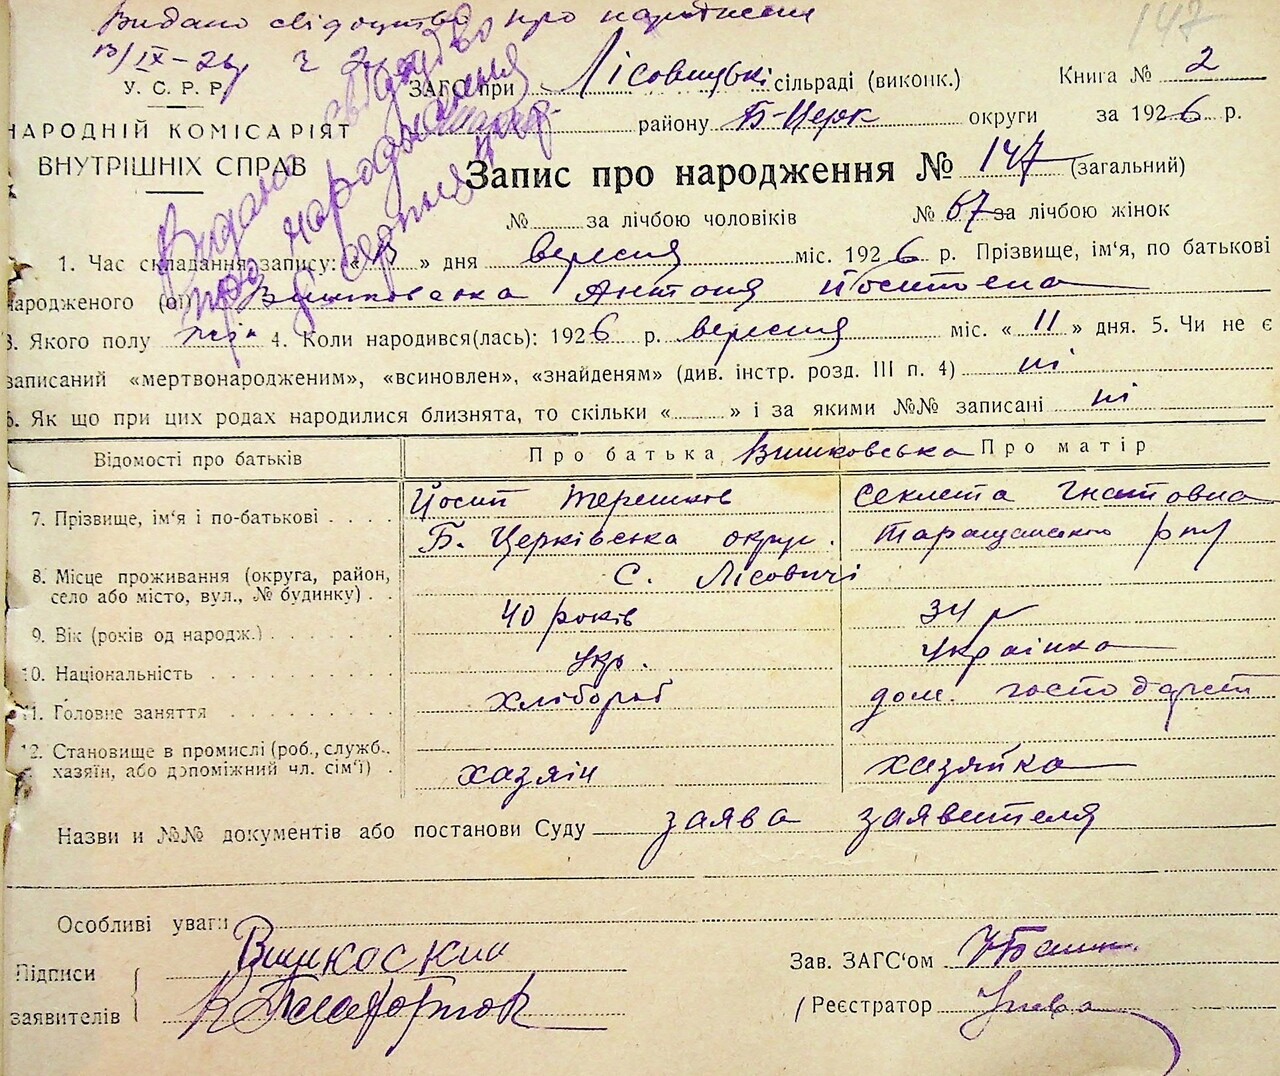 Видано свідоцтво про народження
13/IX-26р ч 2
147
У. С. Р. Р.
НАРОДНІЙ КОМІСАРІЯТ
ВНУТРІШНІХ СПРАВ
Видано свідоцтво
про народження
ЗАГС при Лісовицькі сільраді (виконк.) Книга № 2
району Б-Церк округи за 1926 р.
Запис про народження № 147 (загальний)
№ за лічбою чоловіків № 67 за лічбою жінок
1. Час складання запису: « 13 » дня вересня міс. 1926 р. Прізвище, ім'я, по батькові
народженого (ої) Вишковська Антоня Йосипова
3. Якого полу жін 4. Коли народився(лась): 1926 р. вересня міс. « 11 » дня. 5. Чи не є
записаний «мертвонародженим», «всиновлен», «знайденям» (див. інстр. розд. III п. 4) ні
6. Як що при цих родах народилися близнята, то скільки « » і за якими №№ записані ні
Відомості про батьків Про батька Вишковська Про матір
7. Прізвище, ім'я і по-батькові Йосип Терешков Секлета Гнатовна
Б. Церківська округ. Таращанського
8. Місце проживання (округа, район, село або місто, вул., № будинку) с. Лісовичі
9. Вік (років од народж.) 40 років 34 р
10. Національність Укр. Українка
11. Головне заняття хлібороб дом. господарст
12. Становище в промислі (роб., служб., хазяїн, або допоміжний чл. сім'ї) хазяін хазяйка
Назви и №№ документів або постанови Суду заява заявителя
Особливі уваги
Підписи Вишкоский Зав. ЗАГС'ом
заявителів Реєстратор